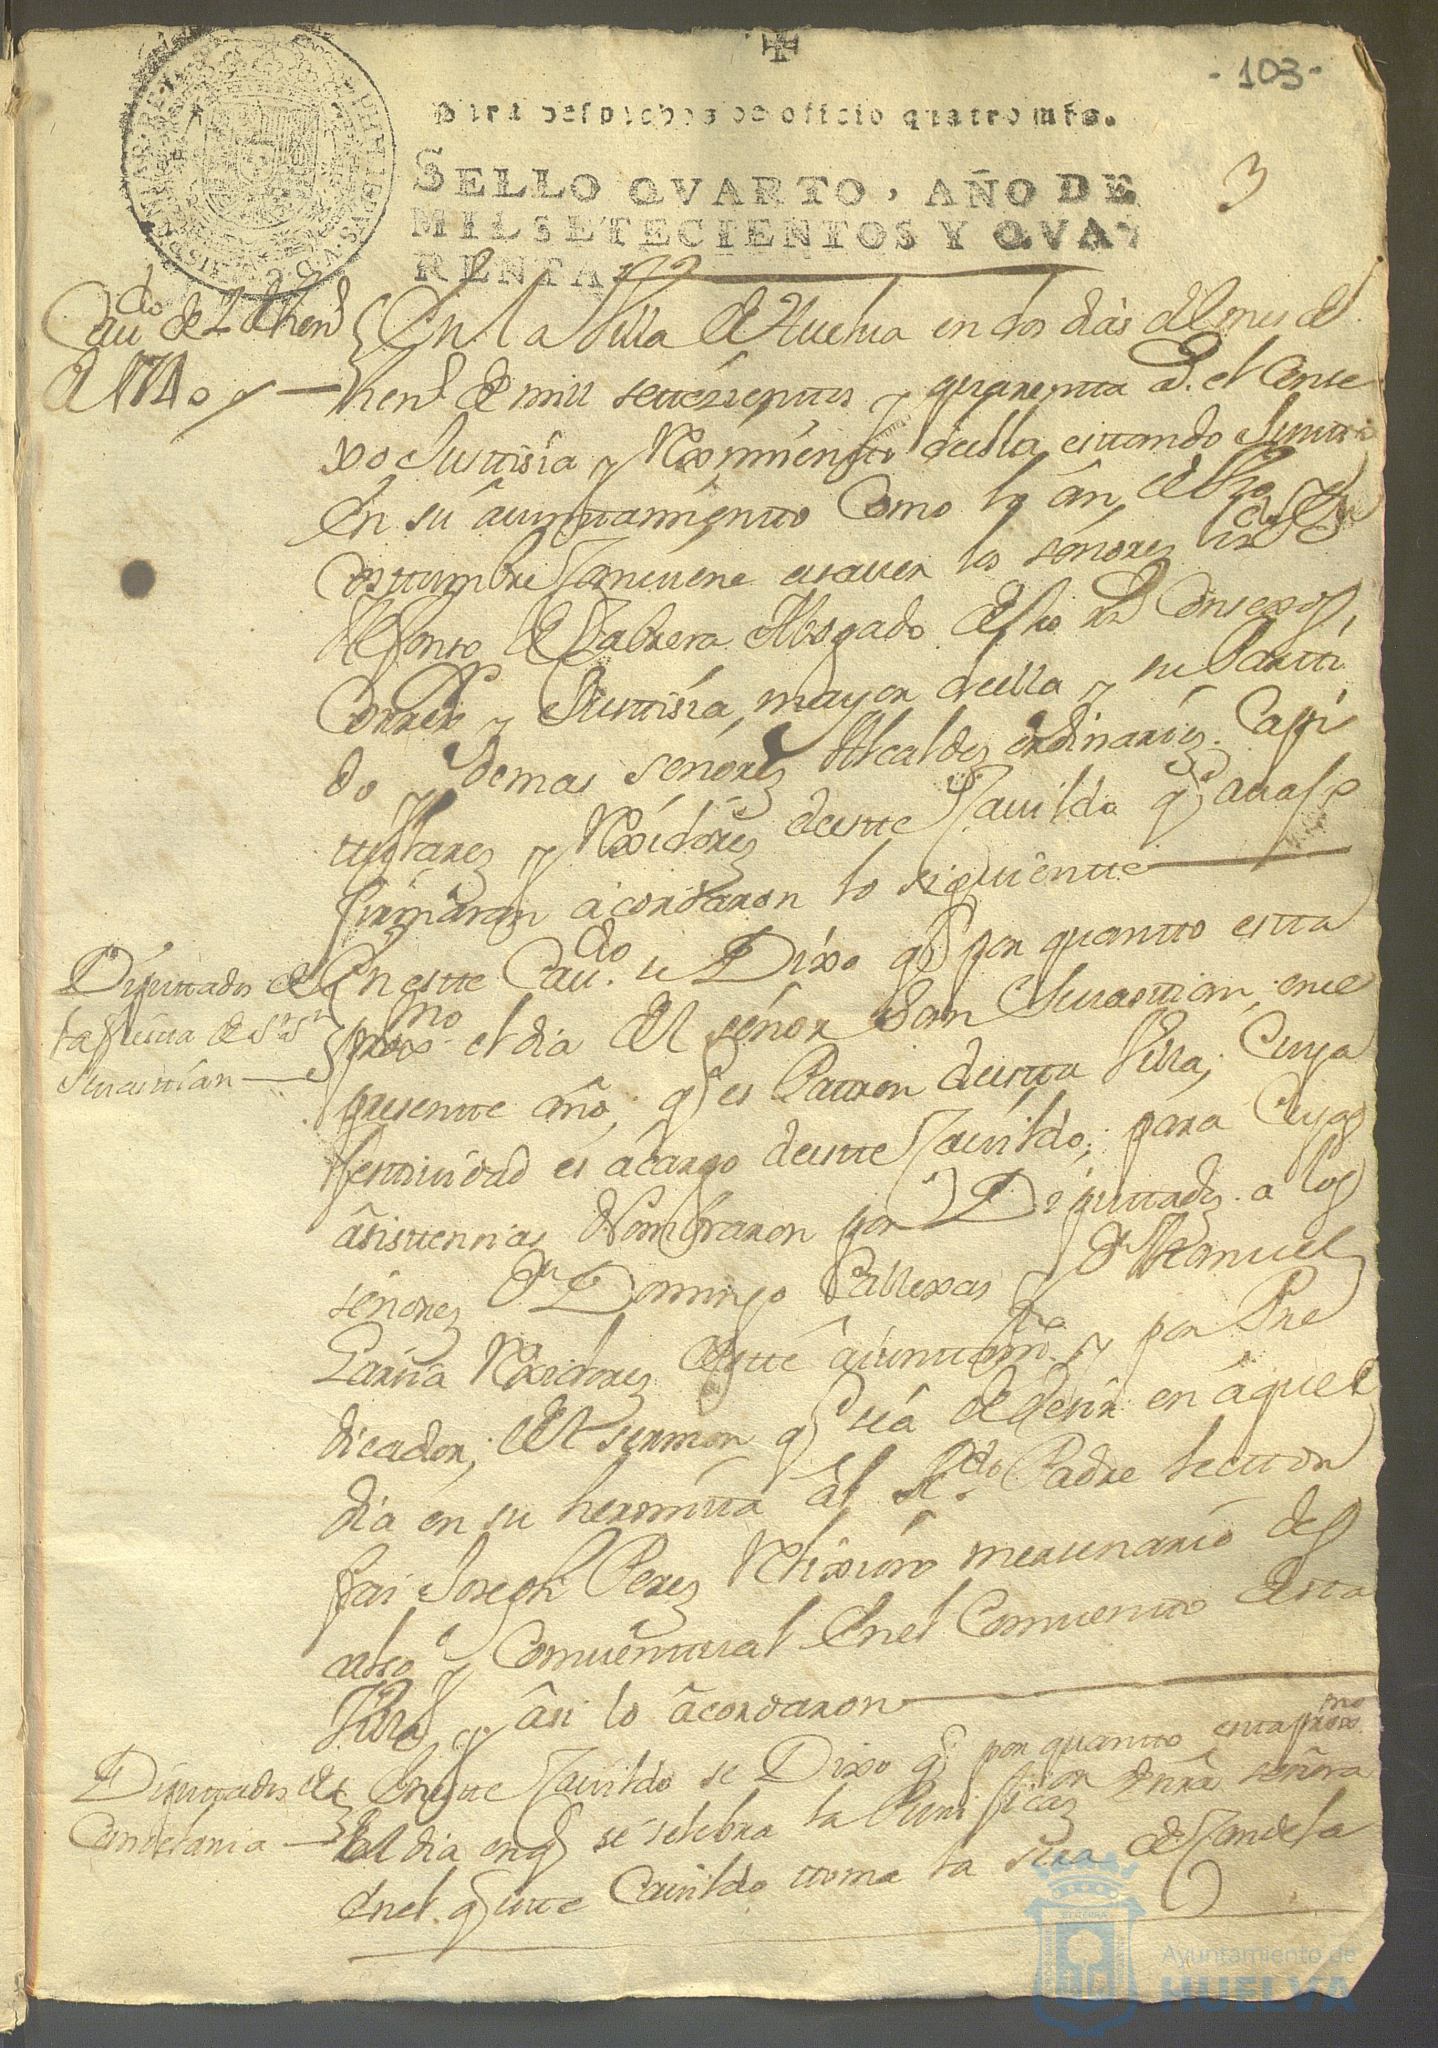 -103-
3
Para despachos de oficio quatro mrs.
SELLO QVARTO, AÑO DE
MIL SETECIENTOS Y QVA
RENTA.
Cau.do de 2 de hen.o
de 1740
En la Villa de Huelva en dos dias del mes de
hen.o de mill settezientos y quarenta a.s el Conse
xo Justisia y Reximiento della estando Junto
en su aiuntamiento Como lo an de Vso
Costumbre Combiene asauer los señores Liz.do Dn
Alfonso de Cabrera Abogado de los R.s Consexos,
Corre.or y Justisia mayor della y su Partti
do y demas señores Alcaldes ordinarios Capi
tulares y Rexidores desste Cauildo q.e auajo
firmaran acordaron lo siguiente
Diputtados de
la fiesta de Sr Sn
Seuastian
En estte Cau.do se Dixo q.e por quantto esta
prox.mo el dia del señor San Seuastian, en el
presente año, q.e es Patron desstta Villa, Cuya
festtiuidad es acargo desste Cauildo, para Cuyas
asistencias Nombraron por Diputtados a los
señores Dn Domingo Vallexas y Dn Manuel
Garcia Rexidores deste aiuntam.to y por Pre
dicador, del sermon q.e sea de desir en aquel
dia en su hermitta al R.do Padre Lecttor
frai Joseph Perez Relixioso mersenario des
calso y Comuentual En el Comuento desta
Villa, y asi lo acordaron
Diputtados de
Candelaria
En estte Cauildo se Dixo q.e por quantto esta prox.mo
el dia en q.e se selebra la Purificaz.on de nra señora
en el q.e este Cauildo ttoma la sera de Candela
Ayuntamiento de
HUELVA